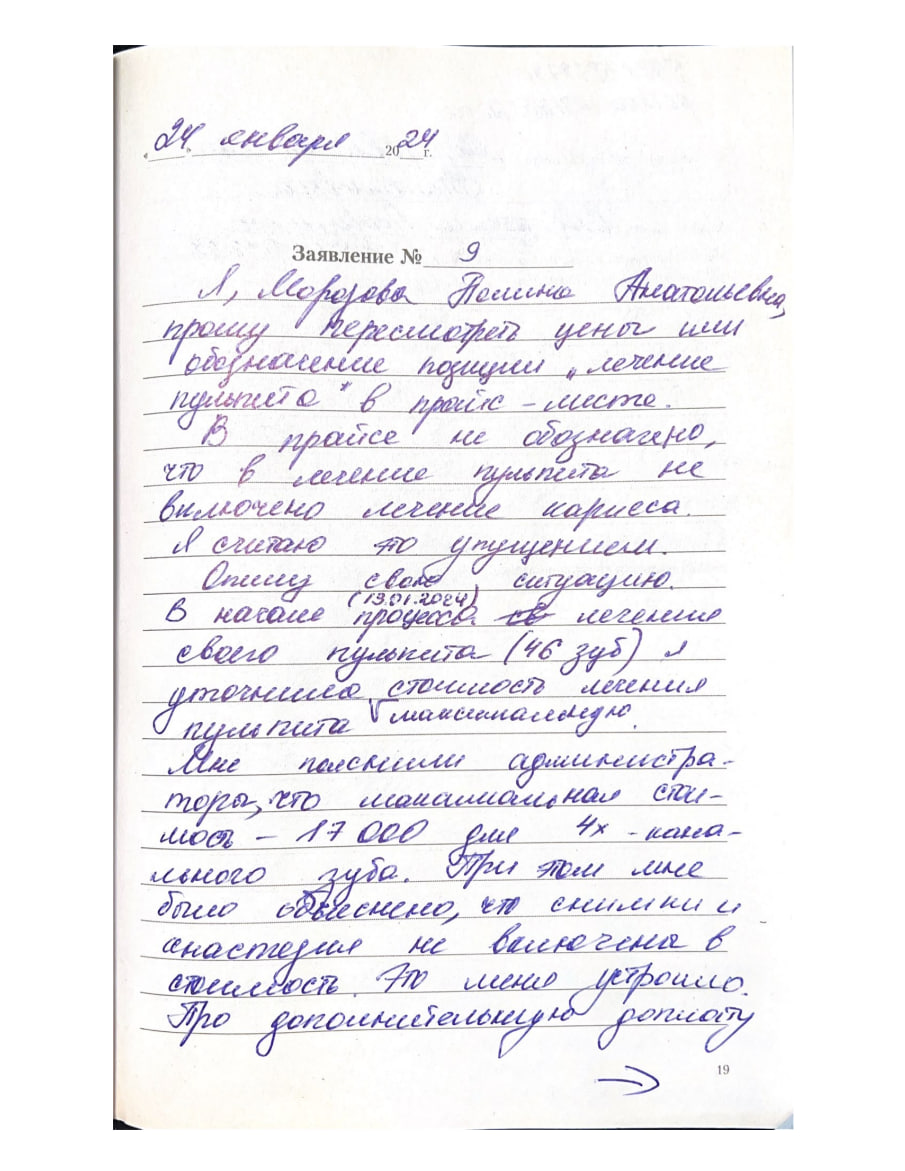 «24» января 2024 г.
Заявление № 9
Я, Морозова Полина Анатольевна,
прошу пересмотреть цены или
обозначение позиции „лечение
пульпита" в прайс-листе.
В прайсе не обозначено,
что в лечение пульпита не
включено лечение кариеса.
Я считаю это упущением.
Опишу свою ситуацию.
(13.01.2024)
В начале процесса лечения
своего пульпита (46 зуб) я
уточнила стоимость лечения
пульпита √ максимальную.
Мне пояснили администра-
торы, что максимальная стои-
мость – 17 000 для 4х-кана-
льного зуба. При этом мне
было объяснено, что снимки и
анастезия не включена в
стоимость. Это меня устроило.
Про дополнительную доплату
19